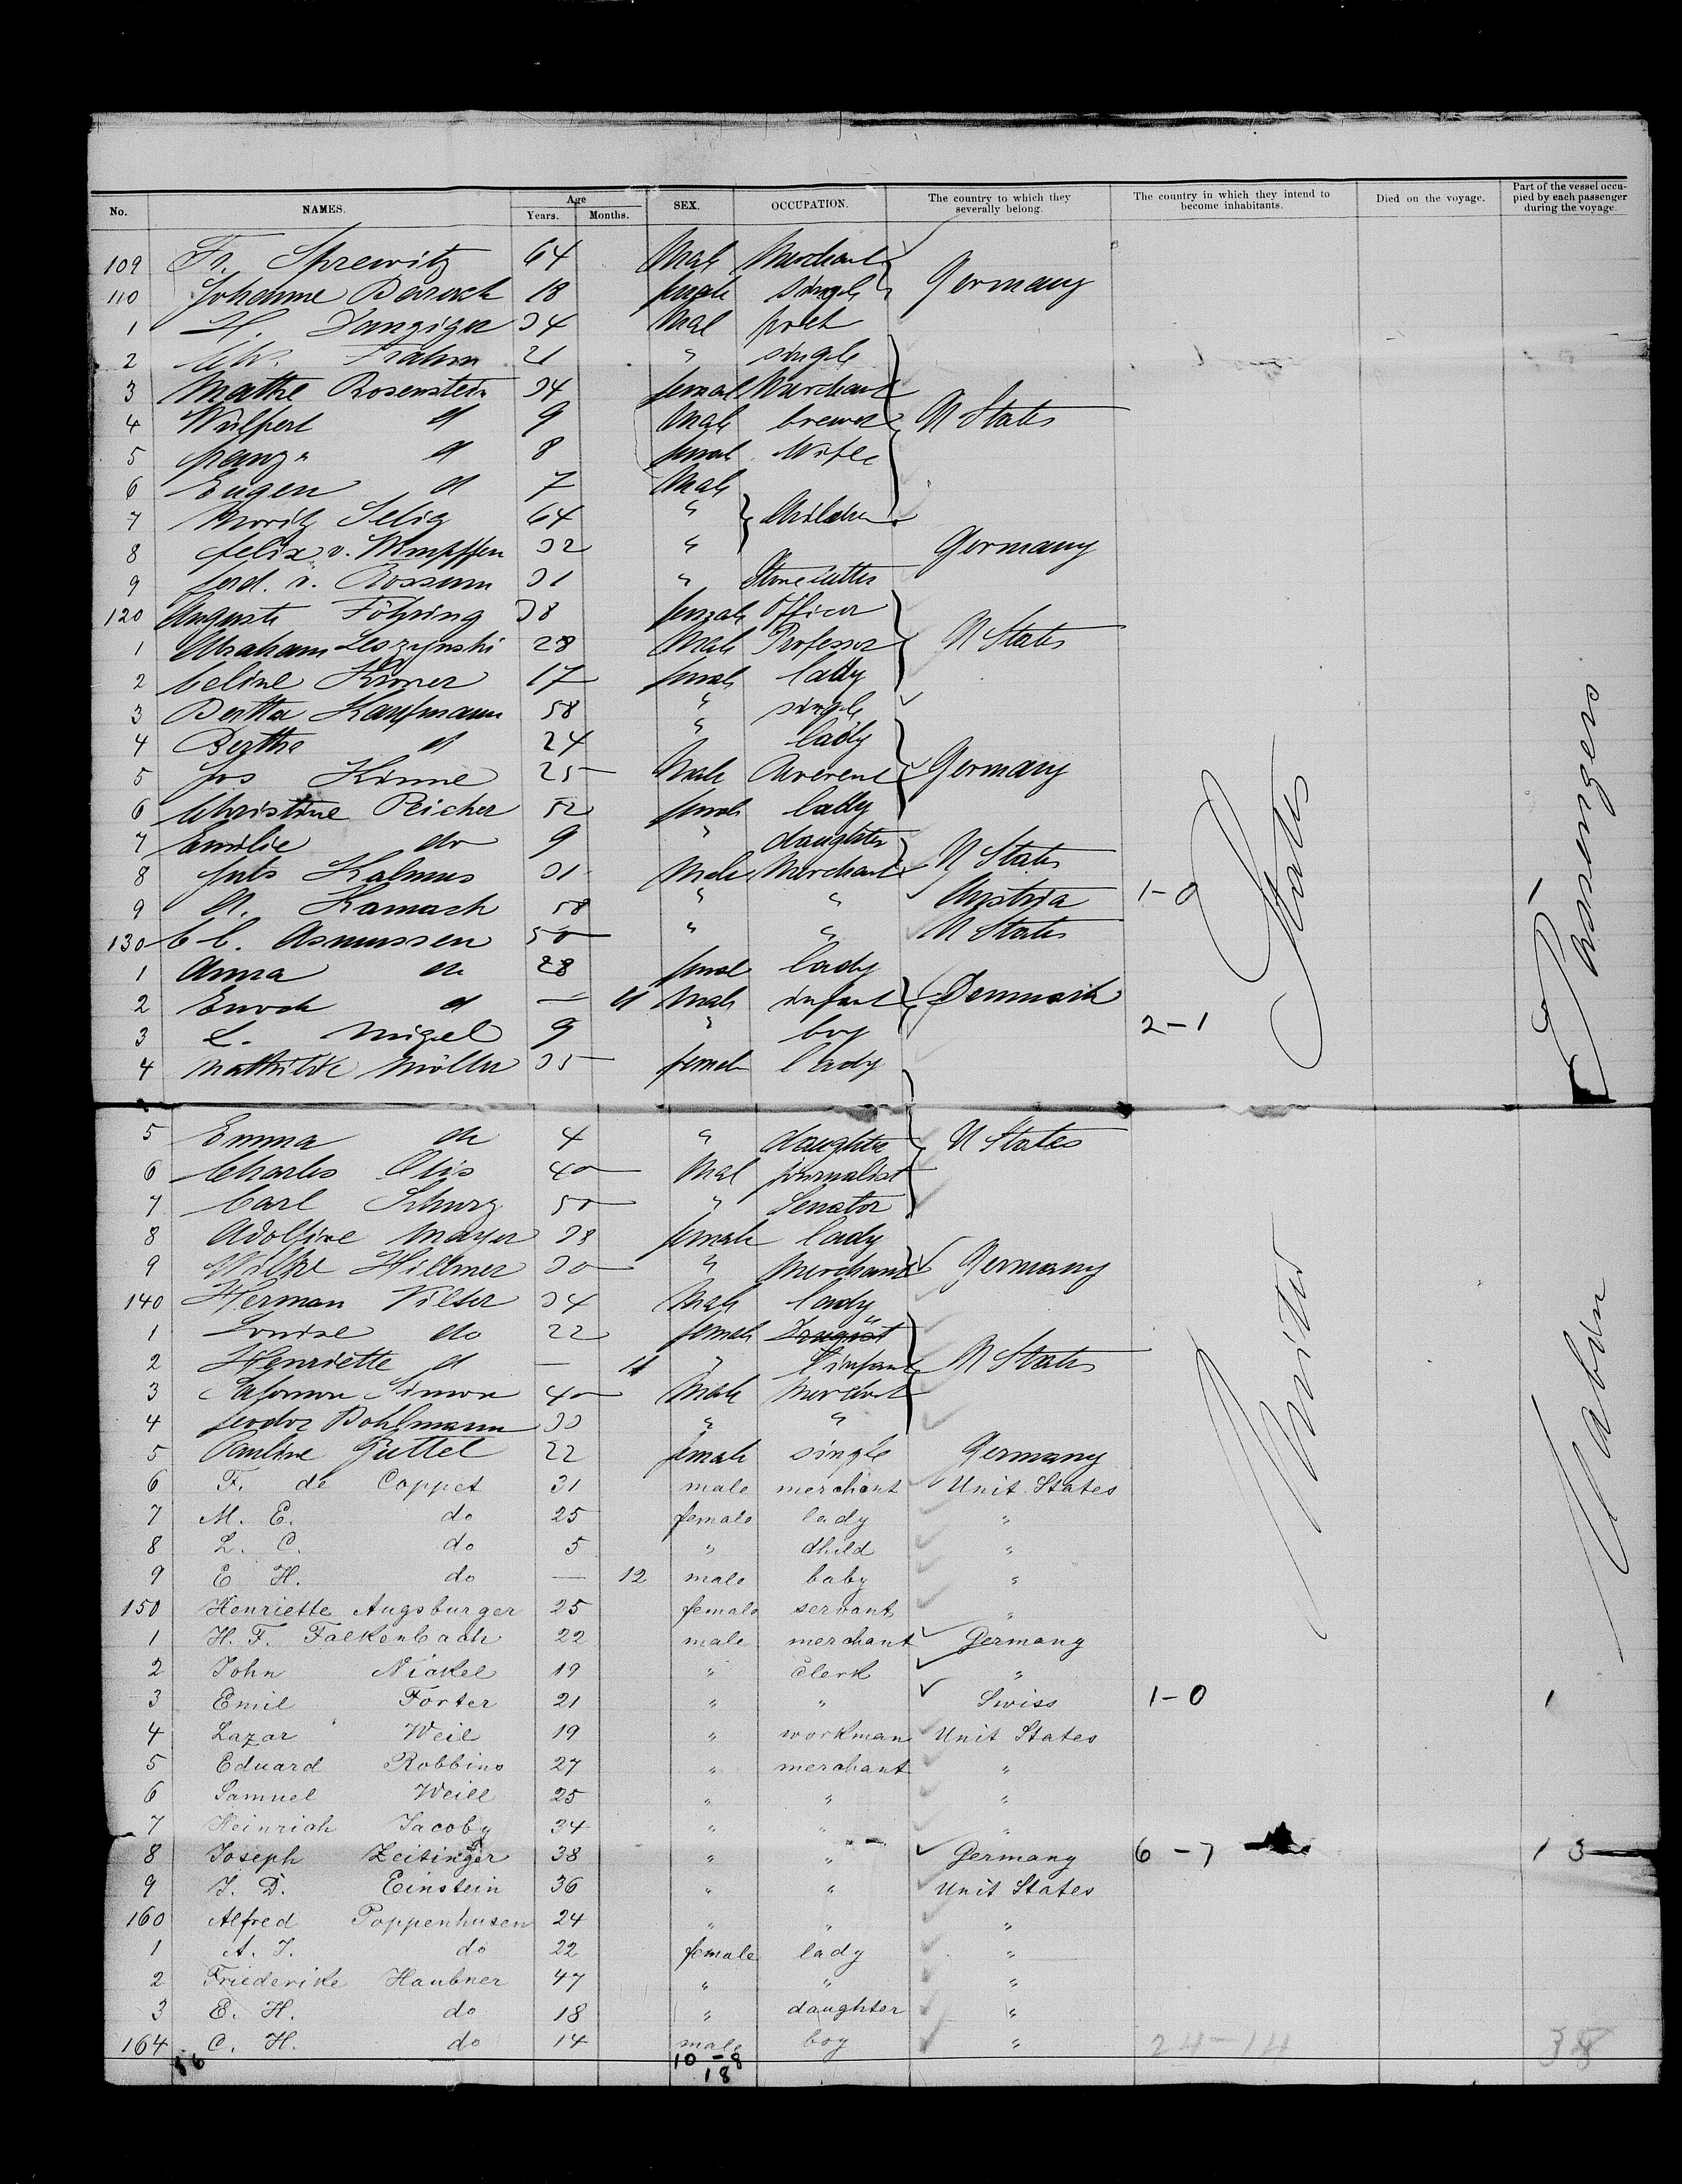 No. NAMES. Age Years. Months. SEX. OCCUPATION. The country to which they severally belong. The country in which they intend to become inhabitants. Died on the voyage. Part of the vessel occupied by each passenger during the voyage.
109 Fr. Sprewitz 64 Male Merchant
110 Johanne 18 female single Germany
1 H. Danziger 34 Mal
2 Frahm 21 " single
3 Mathe Rosenstein 34 female Merchant
4 d 9 Male brewer U States
5 d 8 female Wife
6 Eugen d 7 Male
7 Moritz Selig 64 " Children
8 felix v. Wimpffen 32 " Germany
9 ferd. v. Rossum 31 " Stonecutter
120 Auguste Föhring 38 female Officer
1 Abraham Leszynski 28 Male Professor U States
2 Celine 17 female lady
3 Bertha Kaufmann 58 " single
4 Bertha d 24 " lady
5 Jos Kinne 25 Male Germany
6 Christine Reicher 52 female lady
7 Emilie do 9 " daughter
8 Kalmus 31 Male Merchant U States
9 A. Kamach 58 " " Austria 1-0
130 C C. Asmussen 50 " " U States
1 Anna do 28 female lady
2 Enoch d — 11 Male infant Denmark
3 E. 9 " boy 2-1
4 Mathilde Möller 35 female lady
5 Emma do 4 " daughter U States
6 Charles Otis 40 Mal journalist
7 Carl Schurz 50 " Senator
8 Adolfine Mayer 38 female lady
9 Hillmer 30 " Merchant Germany
140 Herman Vilter 34 Male lady
1 Louise do 22 female "
2 Henriette d — 11 " infant U States
3 Salomon Simon 40 Male Merchant
4 feodor Bohlmann 33 " "
5 Pauline Güttel 22 female single Germany
6 F. de Coppet 31 male merchant Unit. States
7 M. E. do 25 female lady "
8 L. C. do 5 " child "
9 E H. do — 12 male baby "
150 Henriette Augsburger 25 female servant "
1 H. F. Falkenbach 22 male merchant Germany
2 John Nickel 19 " clerk "
3 Emil Forter 21 " " Swiss 1-0 1
4 Lazar Weil 19 " workman Unit States
5 Eduard Robbins 27 " merchant "
6 Samuel Weill 25 " " "
7 Heinrich Jacoby 34 " " "
8 Joseph Zeitinger 38 " " Germany 6-7 13
9 J. D. Einstein 36 " " Unit States
160 Alfred Poppenhusen 24 " " "
1 A. J. do 22 female lady "
2 Friederike Haubner 47 " " "
3 E. H. do 18 " daughter "
164 C. H. do 14 male boy " 24-14 38
56 10-8
18
United States
Cabin Passengers